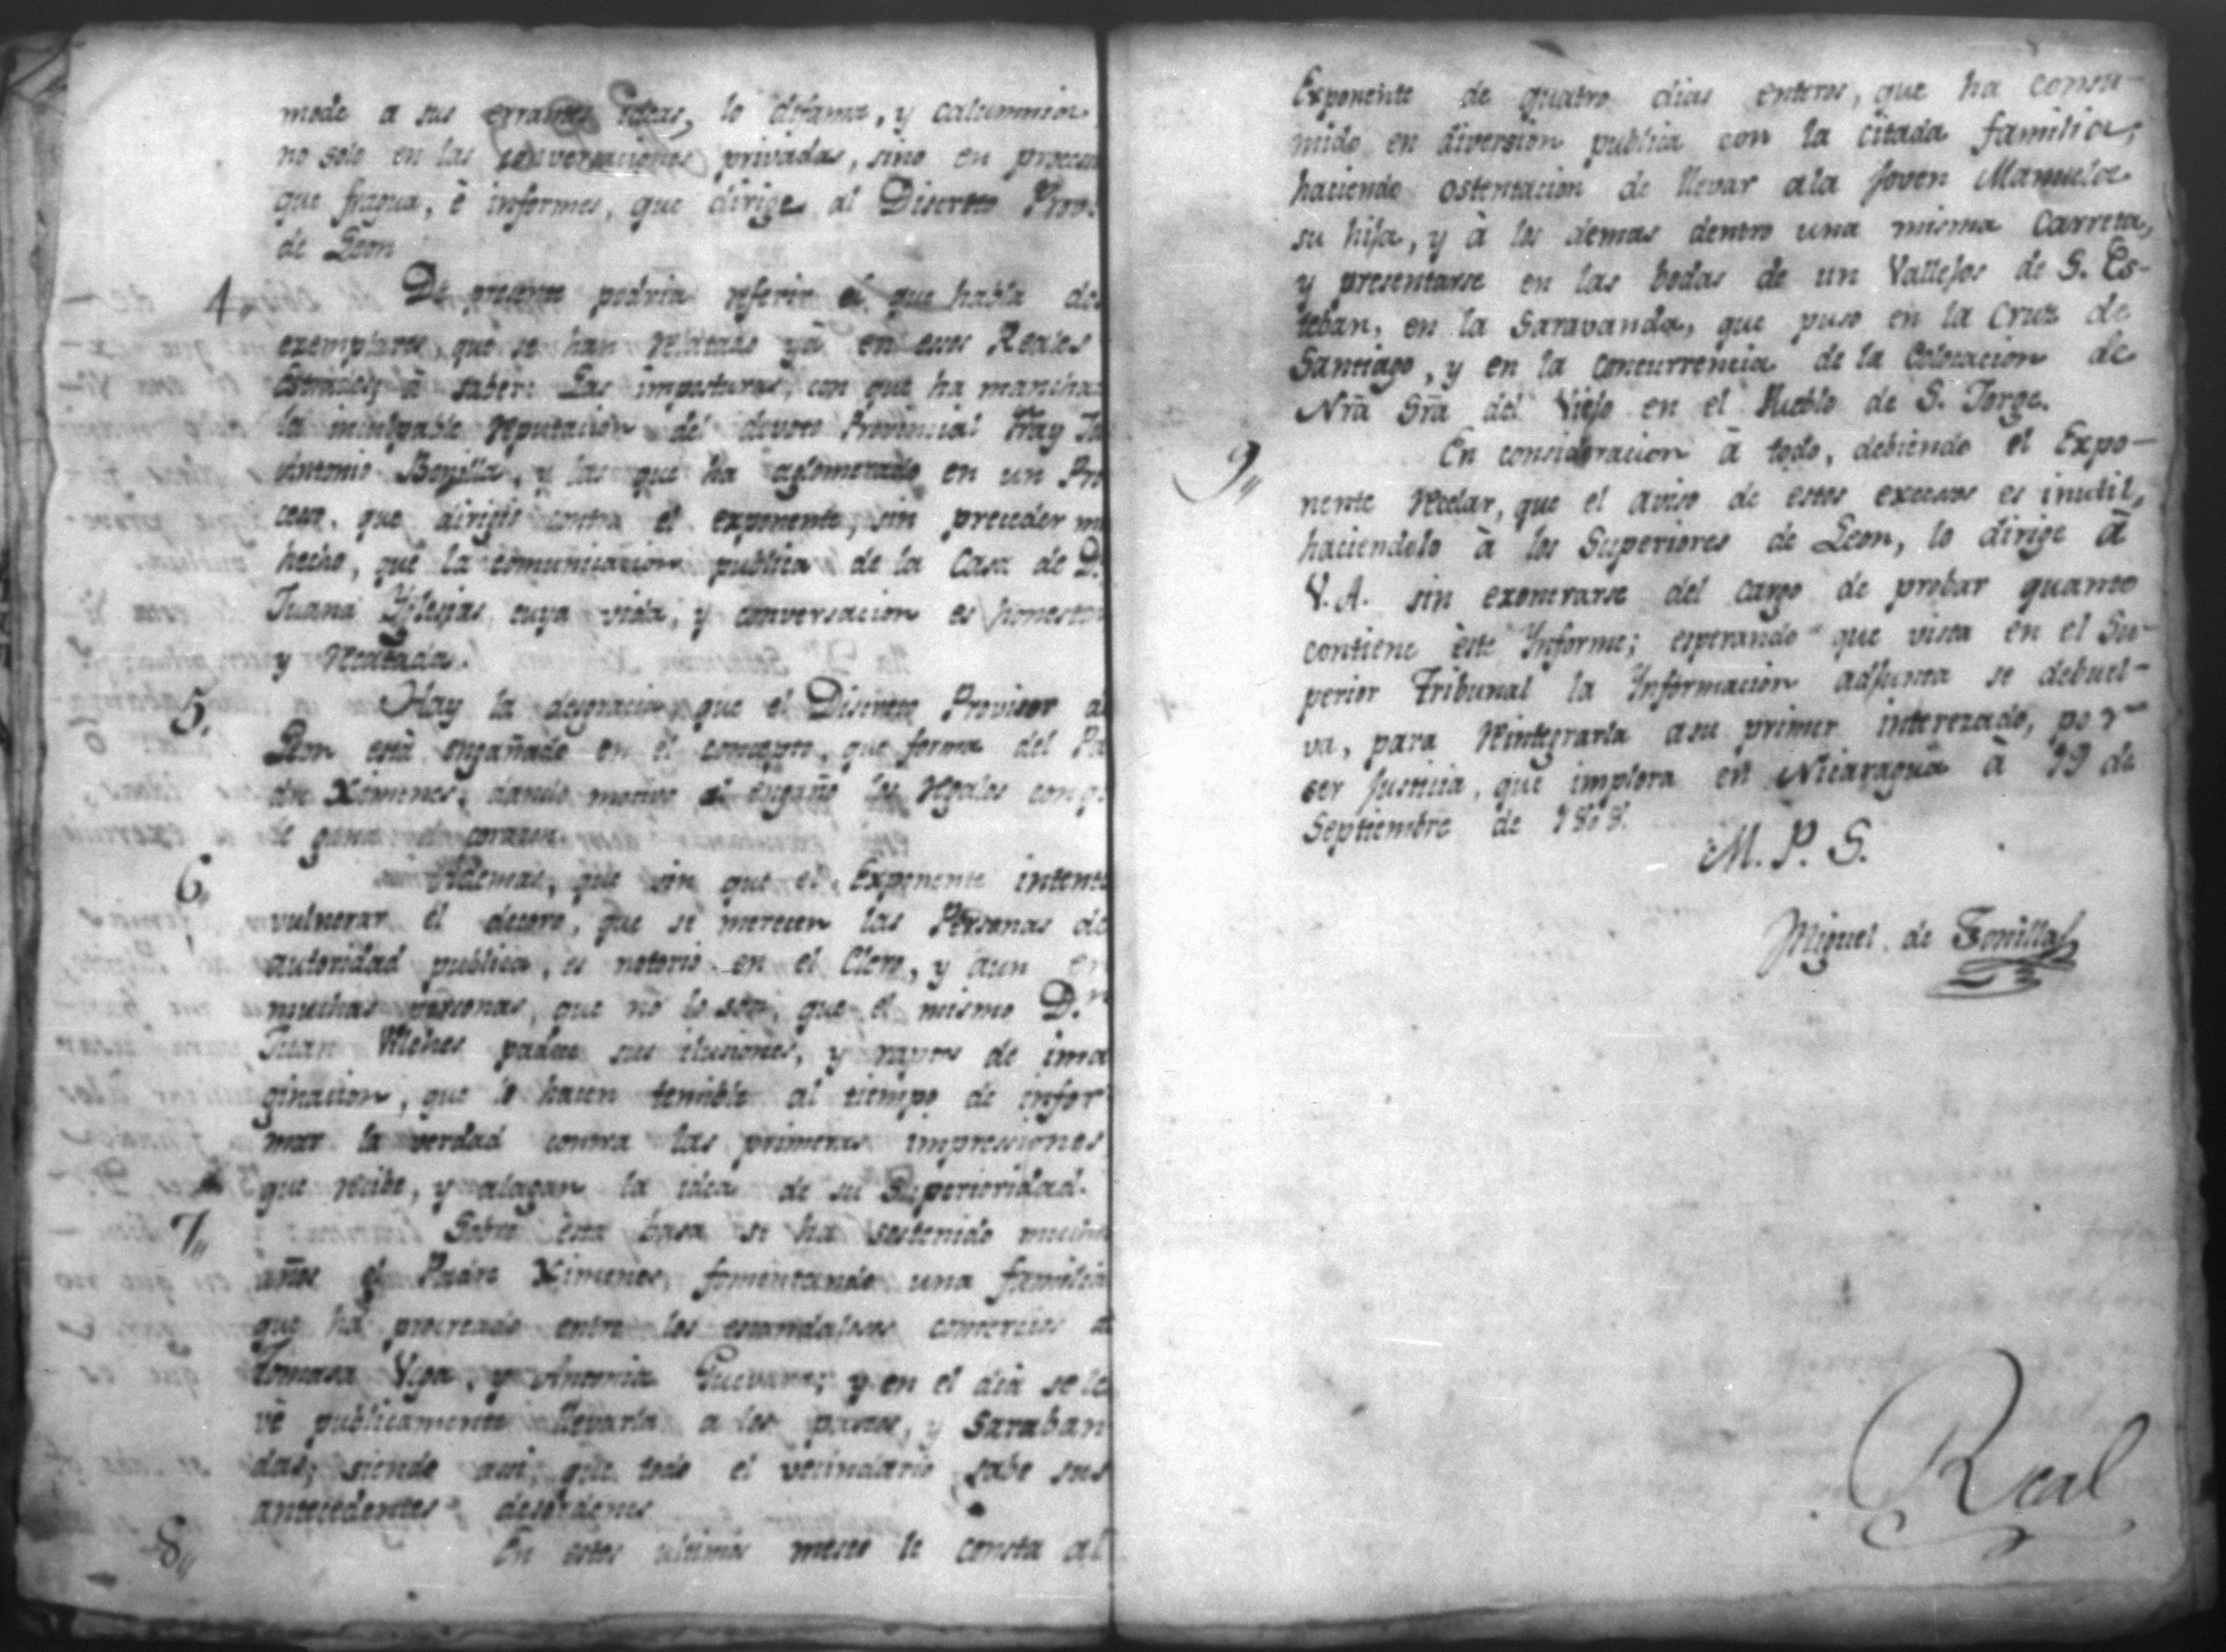 mode a sus errantes ideas, lo difama, y calumnia
no solo en las conversaciones privadas, sino en proceso
que fragua, è informes, que dirige al Discreto Provi
de Leon
4,, De presente podria referir el que habla dos
exemplares, que se han relatado yà en esos Reales
Estrados; à saber: Las imposturas, con que ha mancha
la inculpable reputacion del devoto Provincial Fray
Antonio Bonilla, y las que ha aglomerado en un Pro
ceso, que dirigió contra el exponente, sin preceder m
hecho, que la comunicacion publica de la Casa de D.
Juana Yglesias, cuya vida, y conversacion es honesta
y recatada.
5. Hay la desgracia, que el Discreto Provisor de
Leon està engañado en el concepto, que forma del Pa
dre Ximenes, dando motivo al engaño los regalos con q.
le gana el corazon.
6,, Ademas, que sin que el Exponente intente
vulnerar el decoro, que se merecen las Personas de
autoridad publica, es notorio en el Clero, y aun en
muchas personas, que no lo son, que el mismo D.n
Juan padece sus ilusiones, y raptos de ima
ginacion, que lo hacen temible al tiempo de infor
mar la verdad contra las primeras impresiones
que recibe, y alagan la idea de su Superioridad.
7,, Sobre esta basa se ha sostenido muchos
años el Padre Ximenes, fomentando una familia
que ha procreado entre los escandalosos comercios de
Tomasa Vega, y Antonia Guevara; y en el dia se le
vè publicamente llevarla a los paseos, y Saraban
das; siendo asi, que todo el vecindario sabe sus
antecedentes desordenes
8,, En estos ultimos meses le consta al
Exponente de quatro dias enteros, que ha consu-
mido en diversion publica con la citada familia;
haciendo ostentacion de llevar ala Joven Manuela
su hija, y à los demas dentro una misma Carreta,
y presentarse en las bodas de un Vallejos de S. Es-
teban, en la Saravanda, que puso en la Cruz de
Santiago, y en la concurrencia de la Colocacion de
Nrã Srã del Viejo en el Pueblo de S. Jorge.
9,, En consideracion à todo, debiendo el Expo-
nente recelar, que el aviso de estos excesos es inutil,
haciendolo à los Superiores de Leon, lo dirige à
V.A. sin exonerarse del cargo de probar quanto
contiene èste Informe; esperando que vista en el Su-
perior Tribunal la Informacion adjunta se debuel-
va, para reintegrarla asu primer interezado, por
ser Justicia, que implora en Nicaragua à 19 de
Septiembre de 1808.
M. P. S.
Miguel de Bonilla
Real